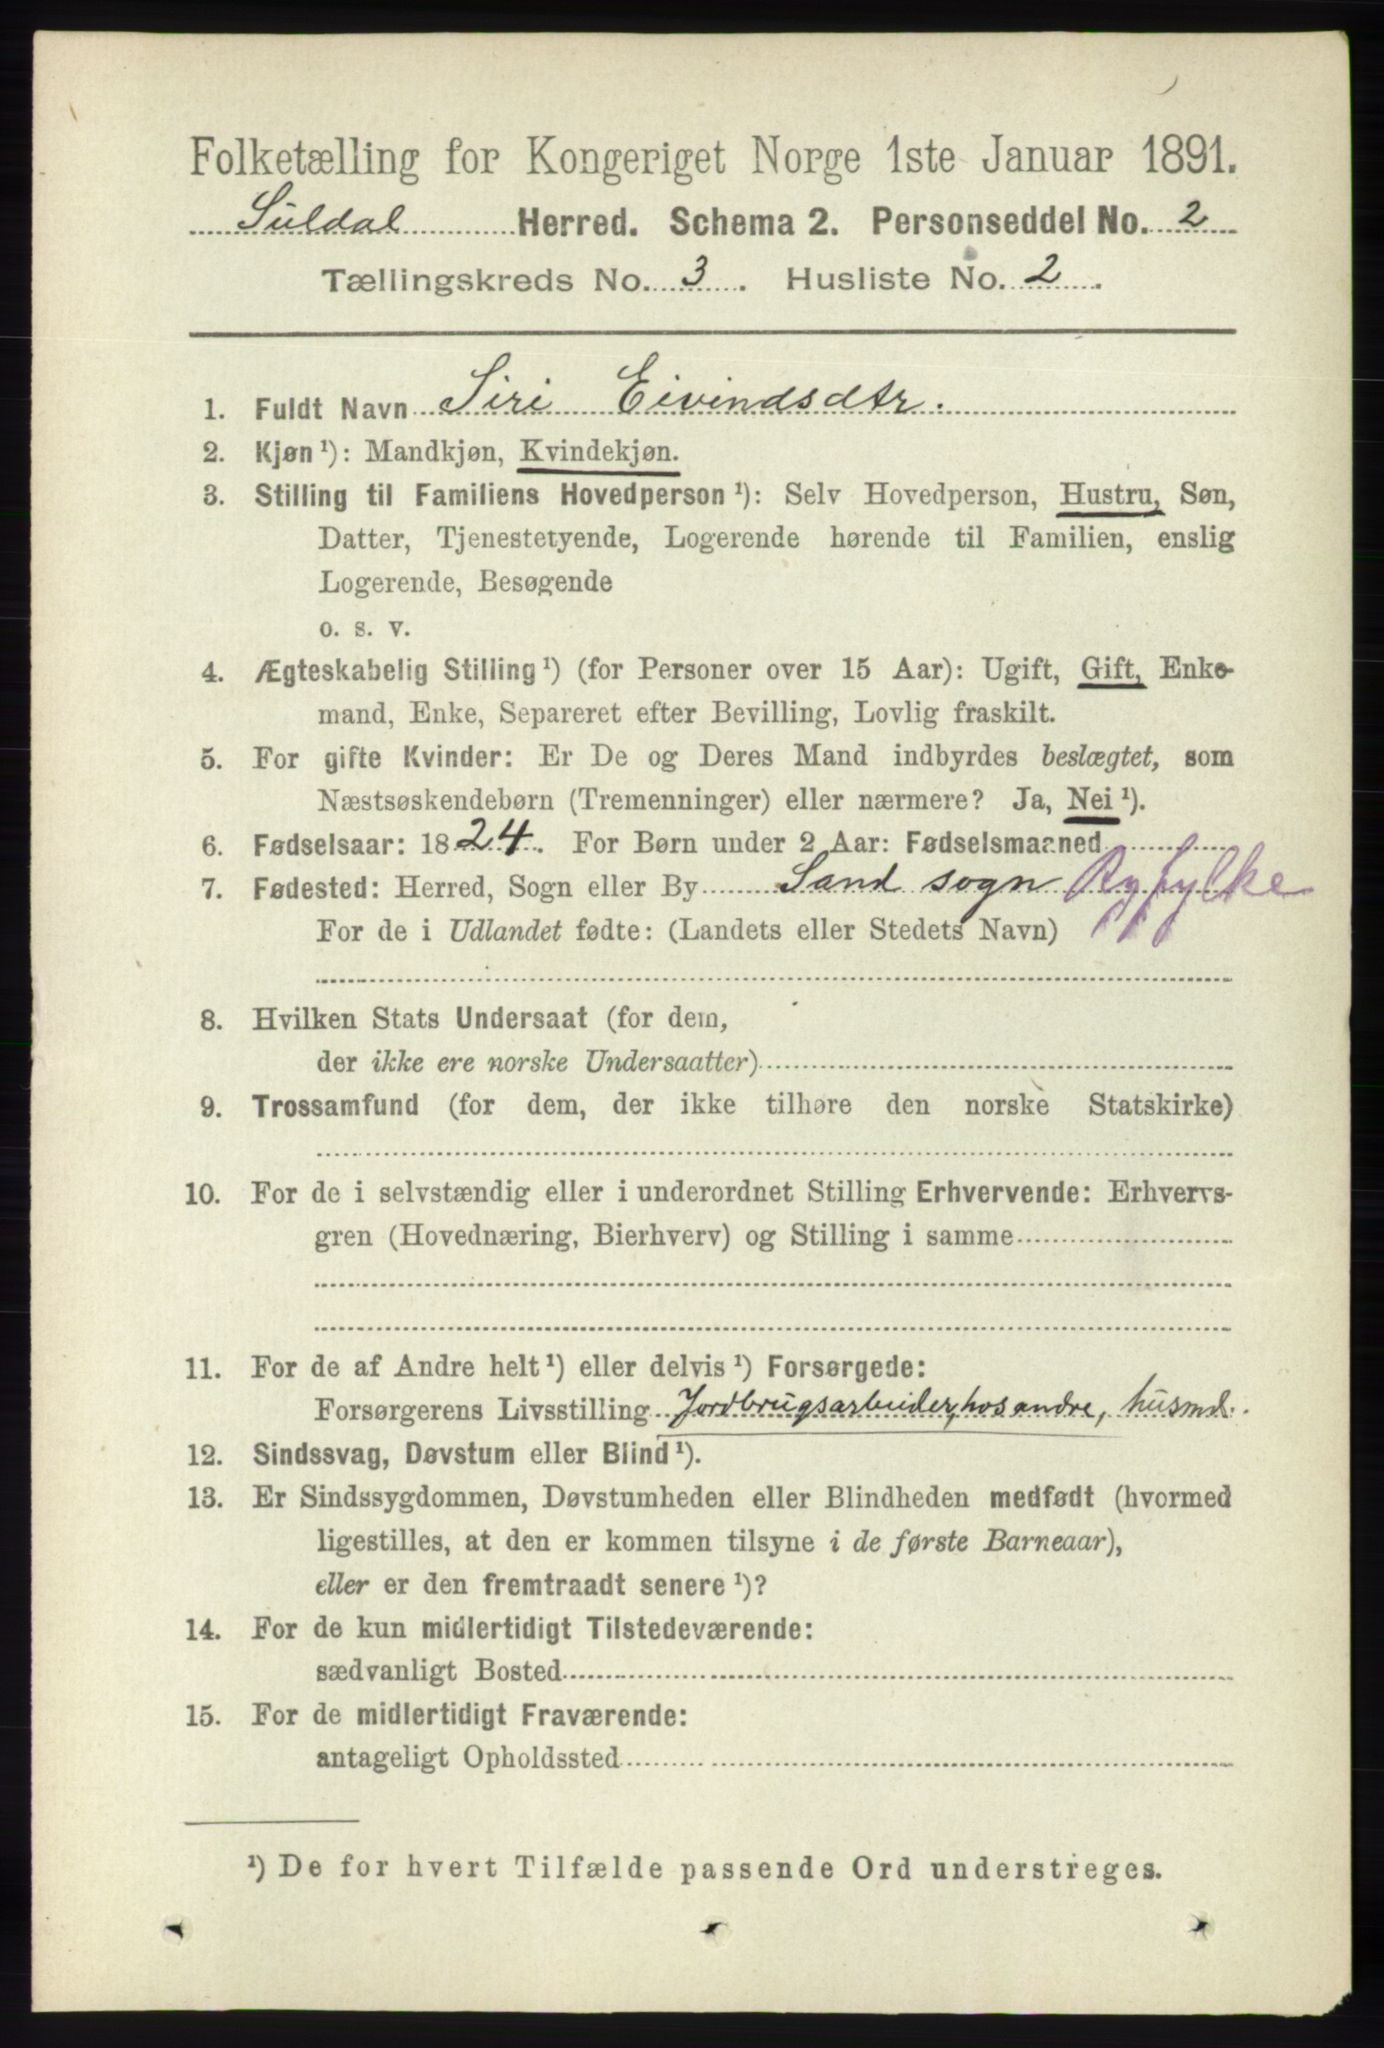 Folketælling for Kongeriget Norge 1ste Januar 1891.
Suldal Herred. Schema 2. Personseddel No. 2
Tællingskreds No. 3. Husliste No. 2.
1. Fuldt Navn Siri Eivindsdtr.
2. Kjøn ¹): Mandkjøn, Kvindekjøn.
3. Stilling til Familiens Hovedperson ¹): Selv Hovedperson, Hustru, Søn,
Datter, Tjenestetyende, Logerende hørende til Familien, enslig
Logerende, Besøgende
o. s. v.
4. Ægteskabelig Stilling ¹) (for Personer over 15 Aar): Ugift, Gift, Enke-
mand, Enke, Separeret efter Bevilling, Lovlig fraskilt.
5. For gifte Kvinder: Er De og Deres Mand indbyrdes beslægtet, som
Næstsøskendebørn (Tremenninger) eller nærmere? Ja, Nei ¹).
6. Fødselsaar: 1824. For Børn under 2 Aar: Fødselsmaaned
7. Fødested: Herred, Sogn eller By Sand sogn Ryfylke
For de i Udlandet fødte: (Landets eller Stedets Navn)
8. Hvilken Stats Undersaat (for dem,
der ikke ere norske Undersaatter)
9. Trossamfund (for dem, der ikke tilhøre den norske Statskirke)
10. For de i selvstændig eller i underordnet Stilling Erhvervende: Erhvervs-
gren (Hovednæring, Bierhverv) og Stilling i samme
11. For de af Andre helt ¹) eller delvis ¹) Forsørgede:
Forsørgerens Livsstilling Jordbrugsarbeider, hos andre, husmd.
12. Sindssvag, Døvstum eller Blind ¹).
13. Er Sindssygdommen, Døvstumheden eller Blindheden medfødt (hvormed
ligestilles, at den er kommen tilsyne i de første Barneaar),
eller er den fremtraadt senere ¹)?
14. For de kun midlertidigt Tilstedeværende:
sædvanligt Bosted
15. For de midlertidigt Fraværende:
antageligt Opholdssted
¹) De for hvert Tilfælde passende Ord understreges.